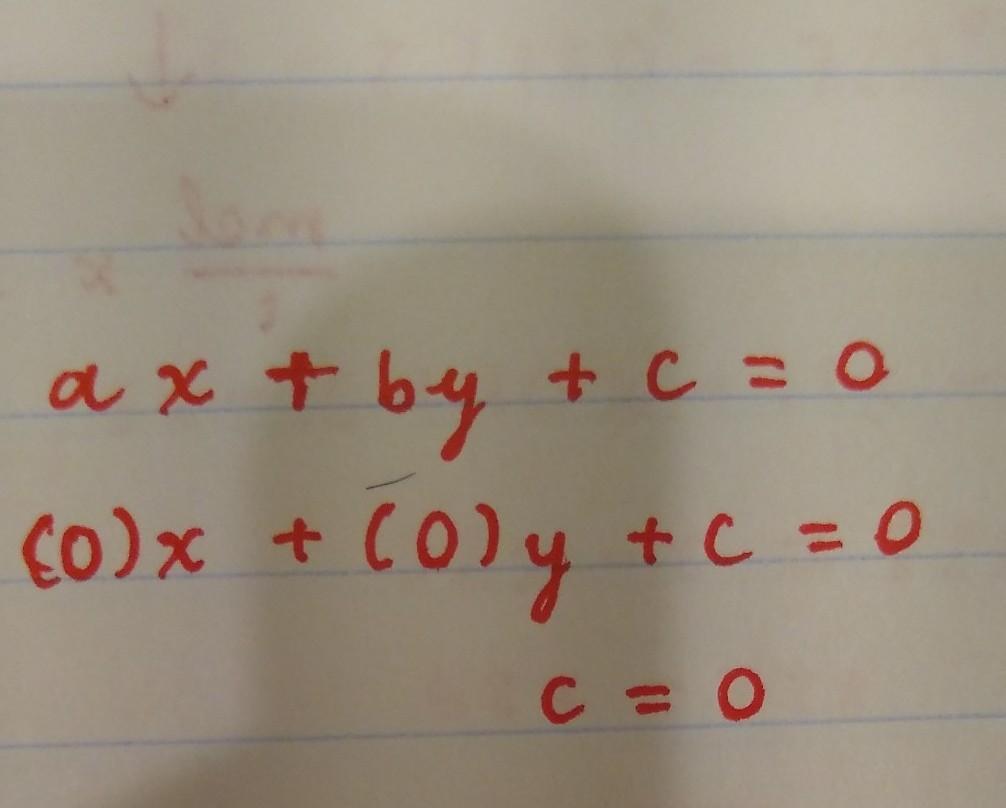 ax + by + c = 0
(0)x + (0)y + c = 0
c = 0